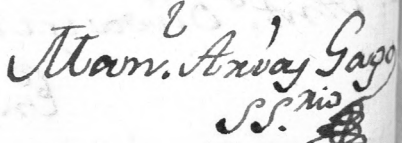 Man.l Arías Gago
SS.rio